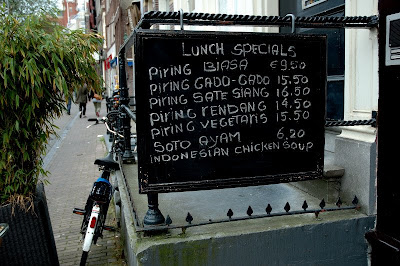 LUNCH SPECIALS
PIRING BIASA €9.50
PIRING GADO-GADO 15.50
PIRING SATE SIANG 16.50
PIRING RENDANG 14.50
PIRING VEGETARIS 15.50
SOTO AYAM 6.20
INDONESIAN CHICKEN SOUP